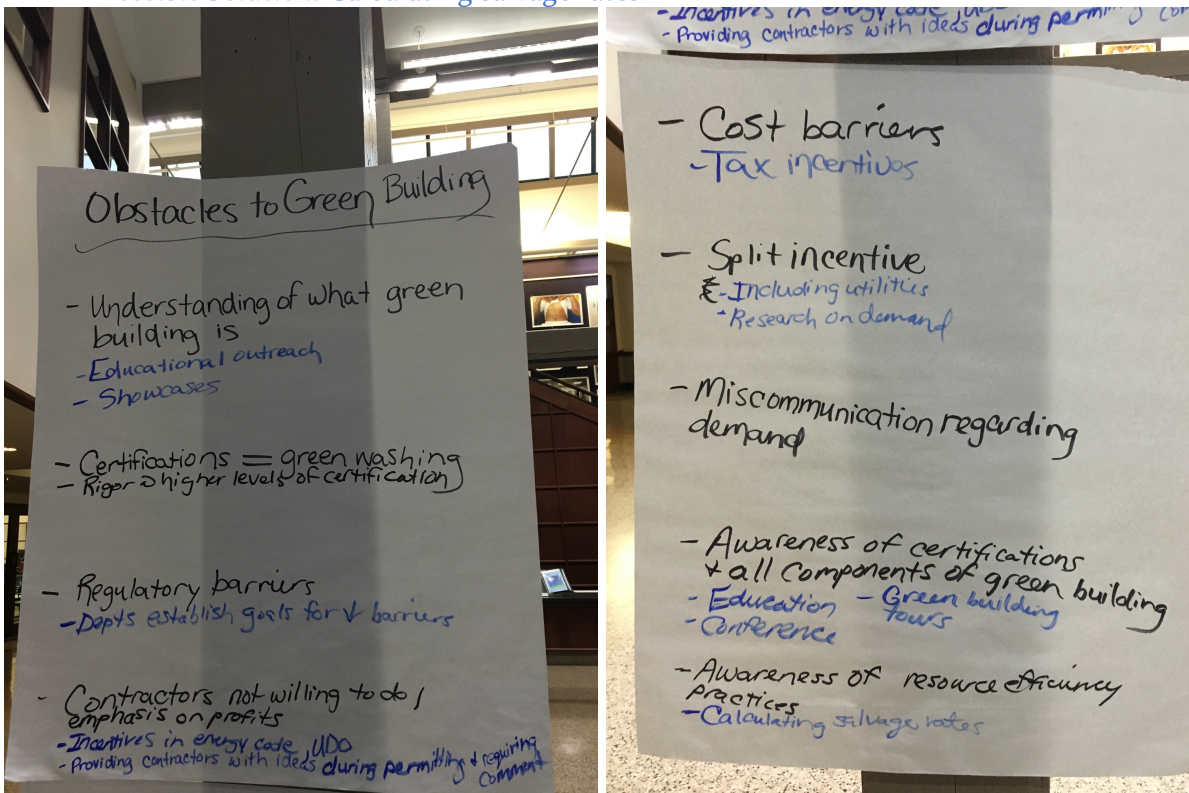 Obstacles to Green Building
- Understanding of what green
building is
- Educational outreach
- Showcases
- Certifications = green washing
- Rigor higher levels of certification
- Regulatory barriers
- Depts establish goals for ↓ barriers
- Contractors not willing to do /
emphasis on profits
- Incentives in energy code, UDO
- Providing contractors with ideas during permitting + requiring
comment
- Incentives in energy code, UDO
- Providing contractors with ideas during permitting
- Cost barriers
- Tax incentives
- Split incentive
- Including utilities
- Research on demand
- Miscommunication regarding
demand
- Awareness of certifications
+ all components of green building
- Education - Green building
tours
- Conference
- Awareness of resource efficiency
practices
- Calculating salvage rates